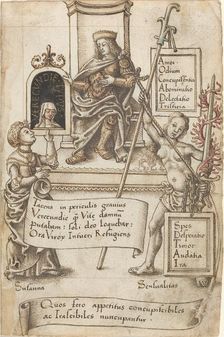 VERECVNDIA
Amor
Odium
Concupiscentia
Abominatio
Delectatio
Tristicia
Iacens in periculis grauius
Verecundie q̃ Vite damnũ
putabam: soli deo loquebar:
Ora Viroɤ Intueri Refugiens
Spes
Desperatio
Timor
Audatia
Ira
Susanna
Sensualitas
Quos vero appetitus concupiscibiles
ac Irascibiles nuncupantur